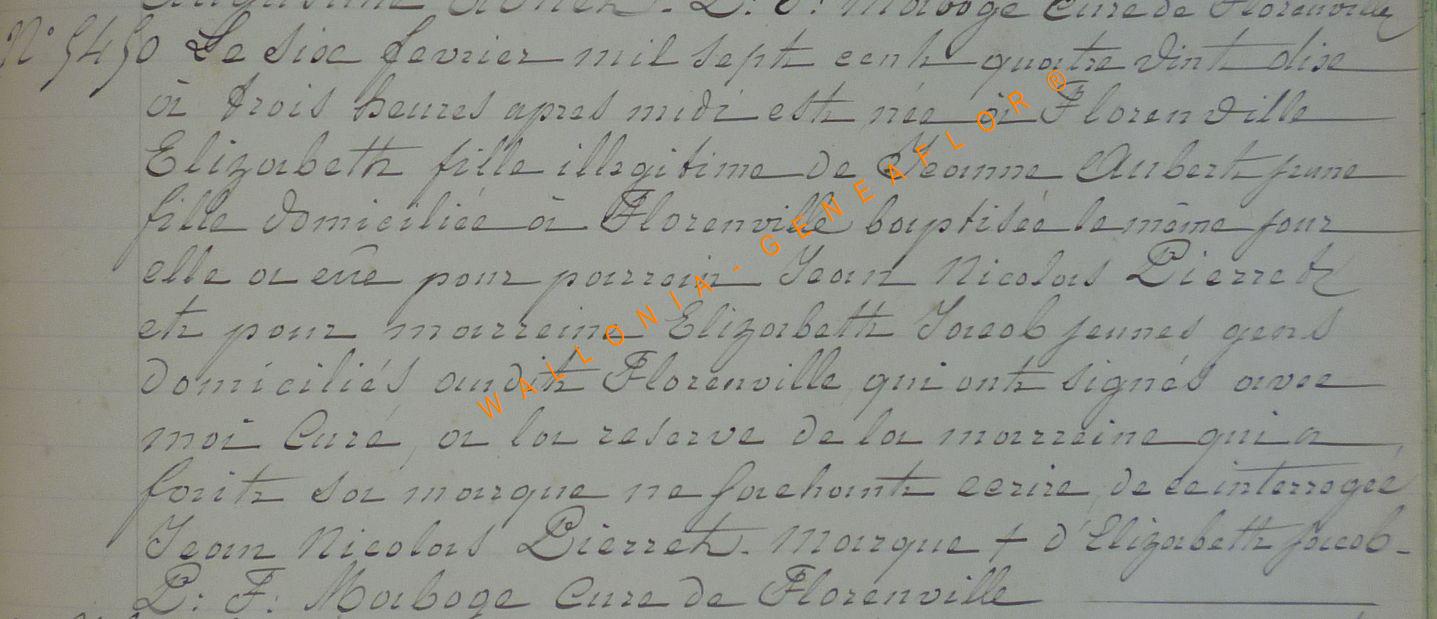 Augustine L: F: Maboge Cure de Florenville
N° 5450 Le six fevrier mil sept cent quatre vint dise
à trois heures apres midi est née à Florenville
Elizabeth fille illegitime de Jeanne Aubert jeune
fille domiciliée à Florenville baptisée le même jour
elle a eue pour parrein Jean Nicolas Pierret
et pour marreine Elizabeth Jacob jeunes gens
domiciliés audit Florenville, qui ont signés avec
moi Curé, a la reserve de la marreine qui a
fait sa marque ne sachant ecrire, de ce interrogée
Jean Nicolas Pierret - Marque + d'Elizabeth Jacob -
L: F: Maboge Cure de Florenville
WALLONIA-GENEAFLOR®